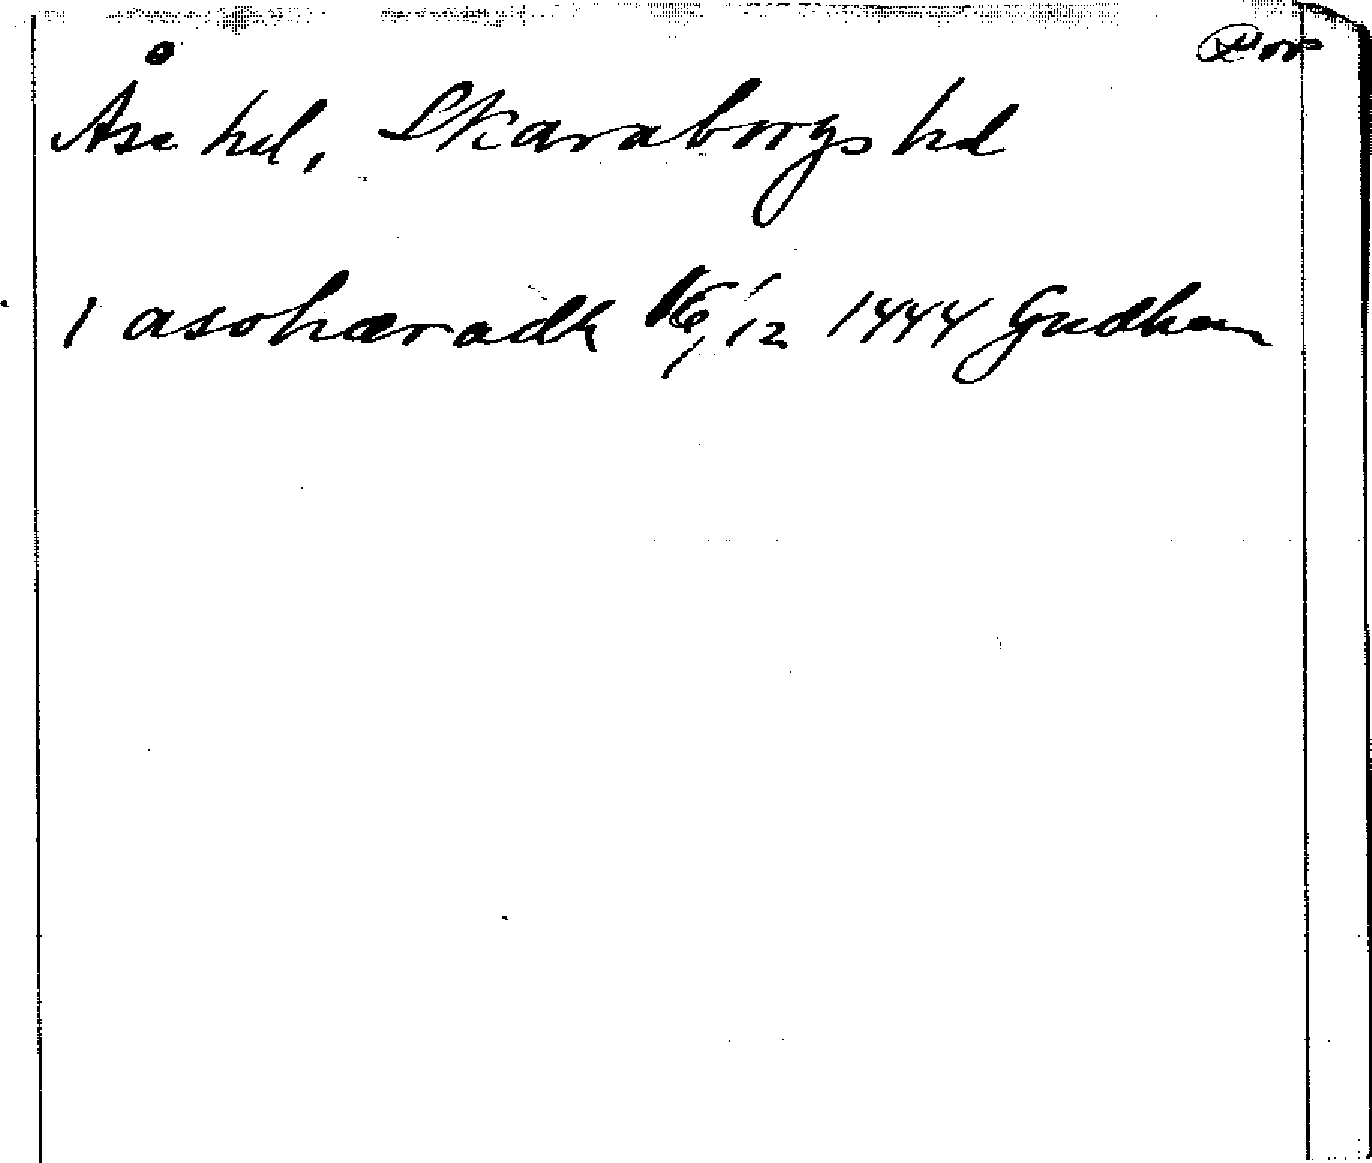 Åse hd, Skaraborgs hd
i asohæradh 16/12 1444 Gudhem